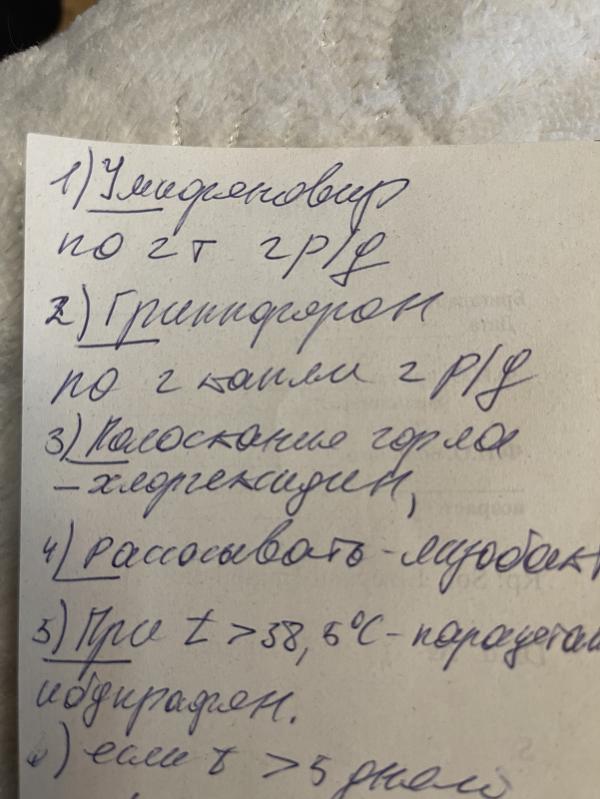 1) Умифеновир
по 2 т 2 р/д
2) Гриппферон
по 2 капли 2 р/д
3) Полоскание горла
– хлоргексидин,
4) рассасывать – лизобакт
5) При t > 38,5°C – парацетам
ибупрафен.
6) если t > 5 дней